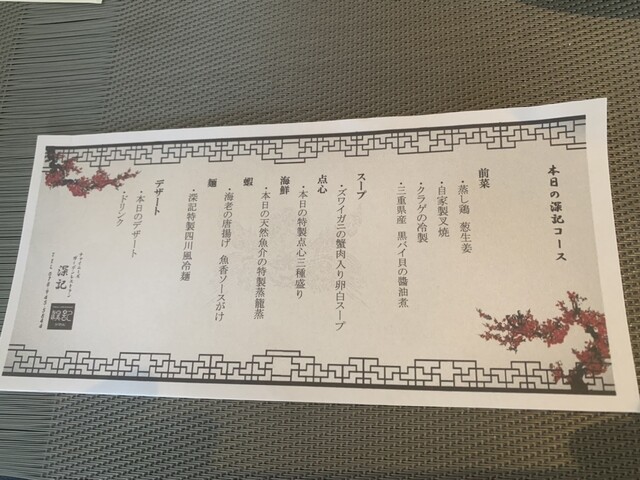 本日の深記コース
前菜
・蒸し鶏 葱生姜
・自家製叉焼
・クラゲの冷製
・三重県産 黒バイ貝の醤油煮
スープ
・ズワイガニの蟹肉入り卵白スープ
点心
・本日の特製点心三種盛り
海鮮
・本日の天然魚介の特製蒸籠蒸
蝦
・海老の唐揚げ 魚香ソースがけ
麺
・深記特製四川風冷麺
デザート
・本日のデザート
・ドリンク
深記